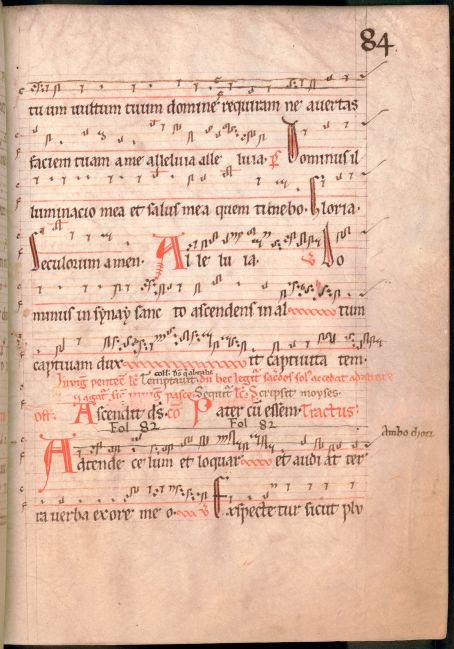 84
tuum vultum tuum domine requiram ne avertas
faciem tuam a me alleluia alle luia. Dominus il
luminacio mea et salus mea quem timebo. Gloria.
Seculorum amen. Alle lu ia. Do
minus in synay sanc to ascendens in al tum
captivam dux it captivita tem.
Ascendit ds. co Pater cū essem. Tractus
Fol 82 Fol 82
Attende ce lum et loquar et audi at ter
Ambo chori
ra verba ex ore me o. Exspecte tur sicut plu